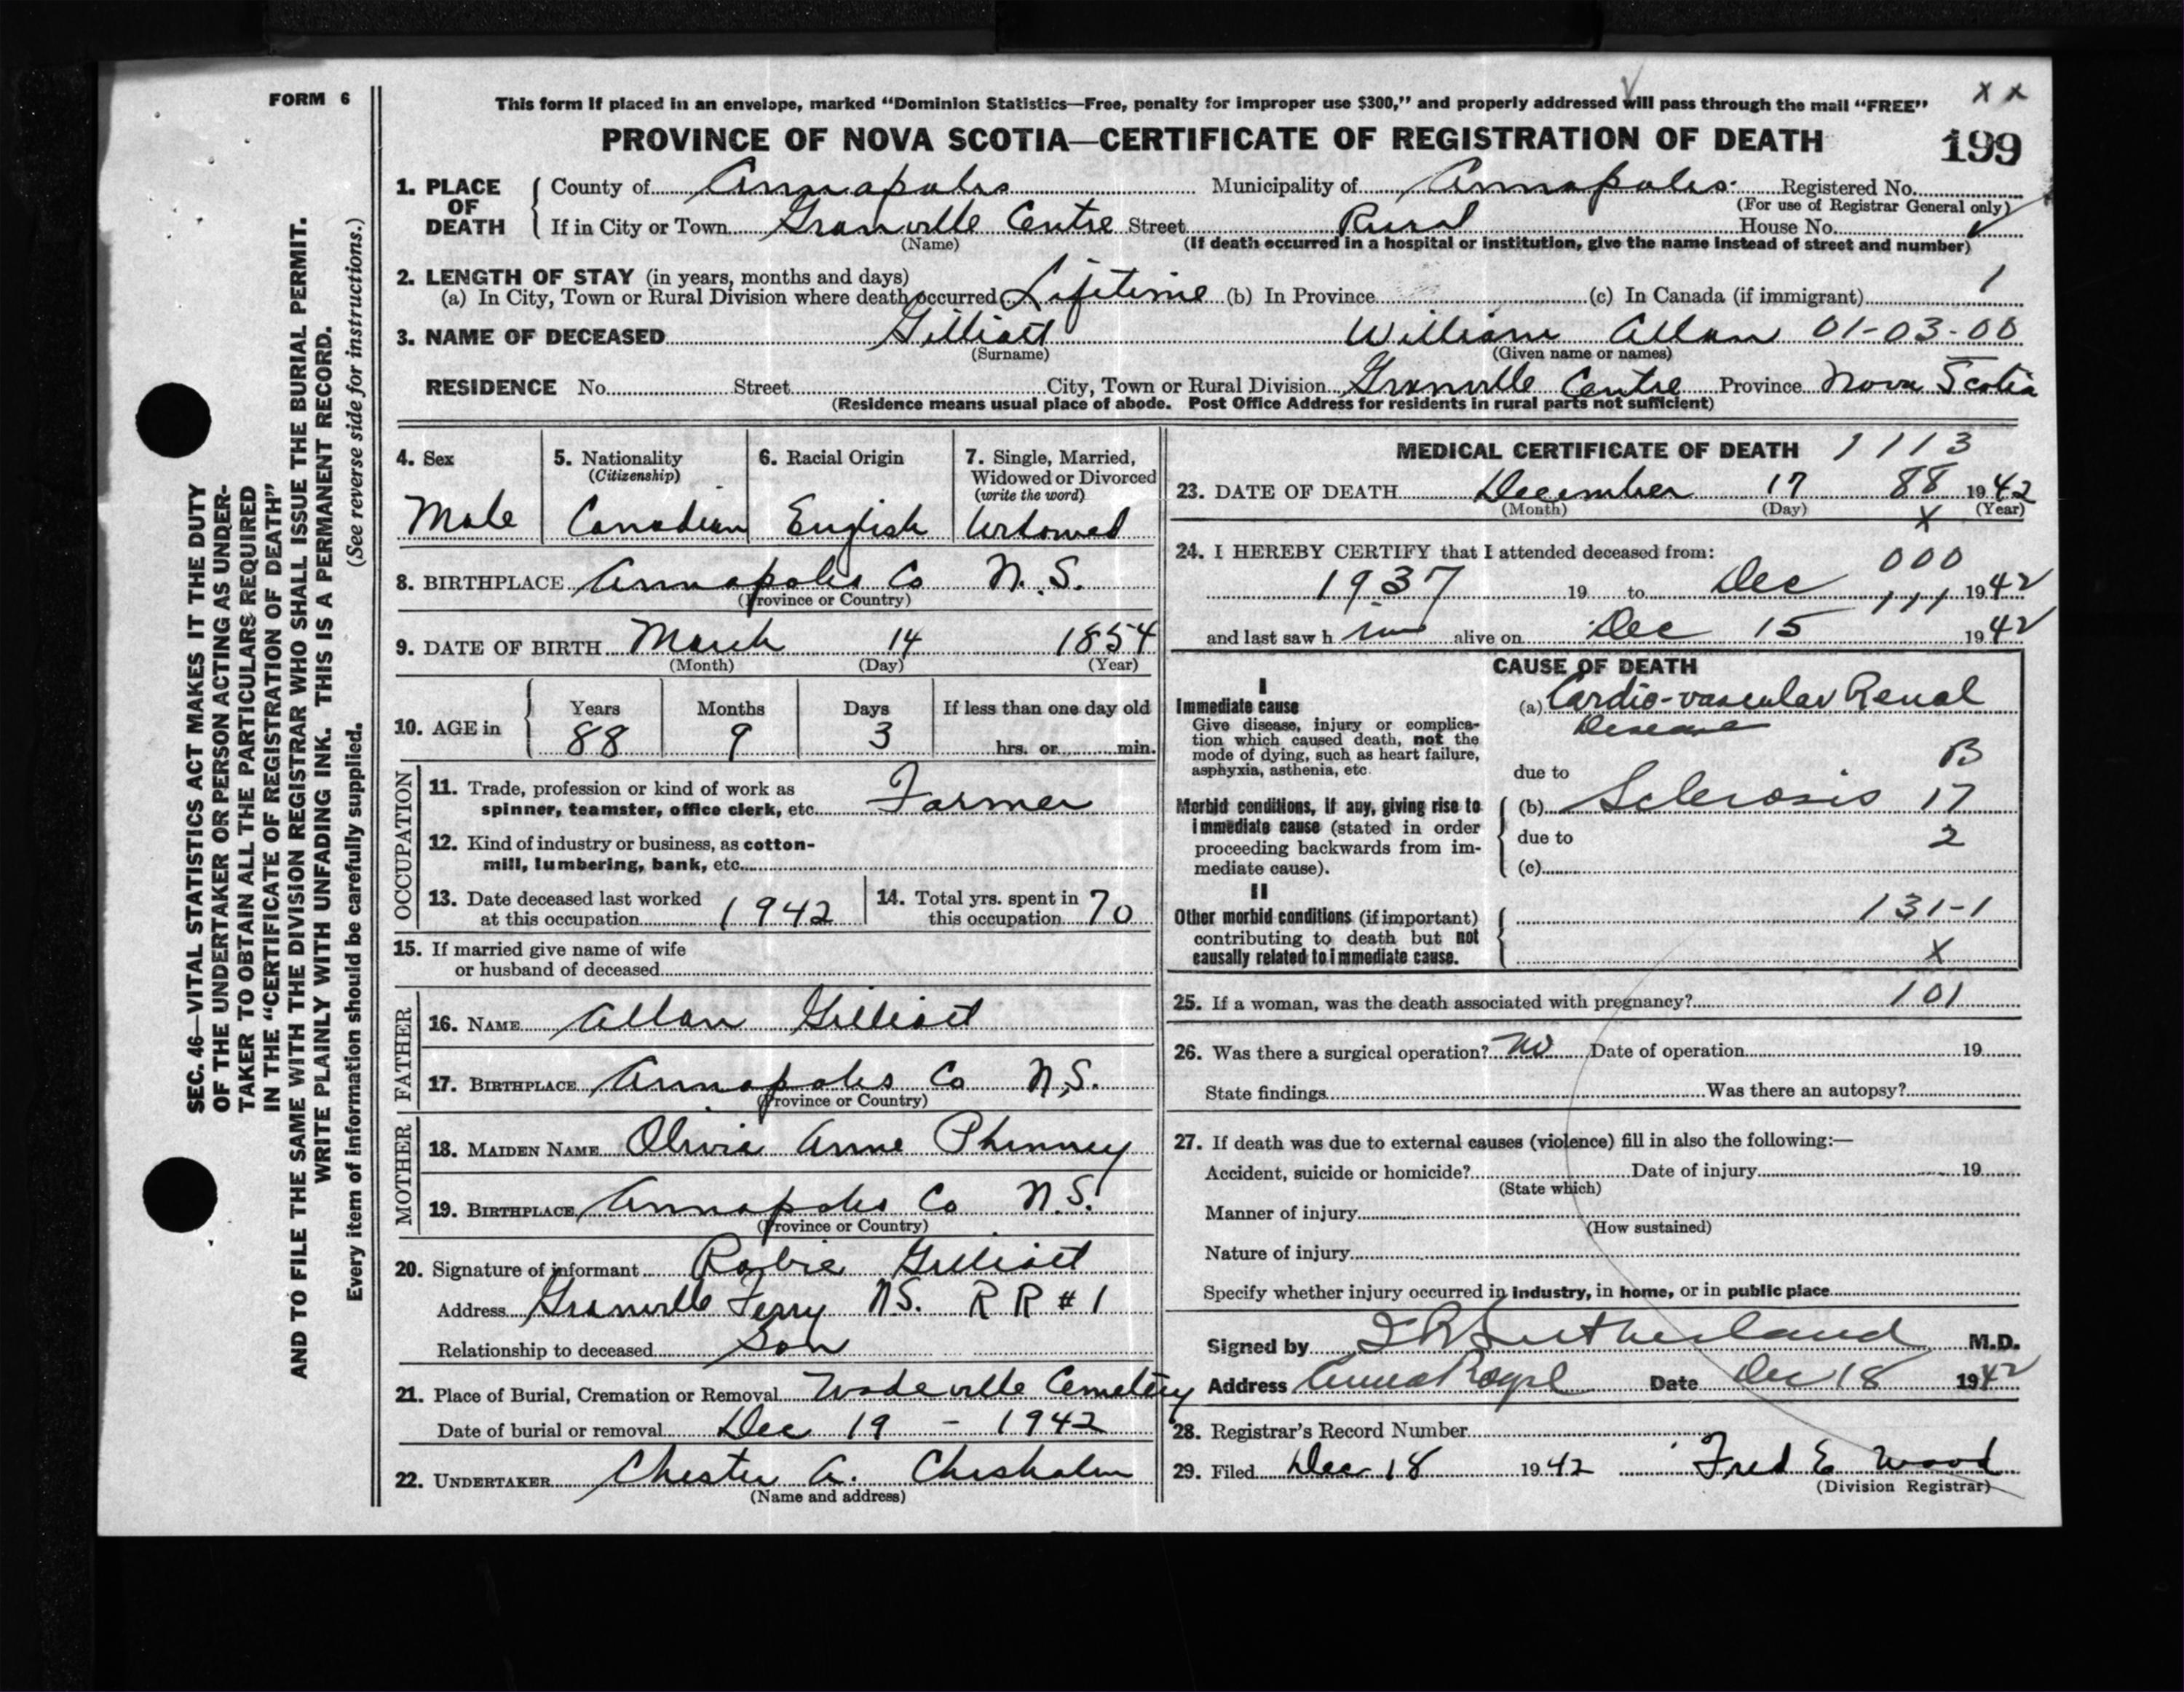 FORM 6
This form if placed in an envelope, marked "Dominion Statistics—Free, penalty for improper use $300," and properly addressed will pass through the mail "FREE" x x
PROVINCE OF NOVA SCOTIA—CERTIFICATE OF REGISTRATION OF DEATH 199
1. PLACE OF DEATH County of Annapolis Municipality of Annapolis Registered No.
(For use of Registrar General only)
If in City or Town Granville Centre Street Rural House No.
(Name) (If death occurred in a hospital or institution, give the name instead of street and number)
2. LENGTH OF STAY (in years, months and days) 1
(a) In City, Town or Rural Division where death occurred Lifetime (b) In Province (c) In Canada (if immigrant)
3. NAME OF DECEASED Gilliatt William Allan 01-03-00
(Surname) (Given name or names)
RESIDENCE No. Street City, Town or Rural Division Granville Centre Province Nova Scotia
(Residence means usual place of abode. Post Office Address for residents in rural parts not sufficient)
4. Sex 5. Nationality (Citizenship) 6. Racial Origin 7. Single, Married, Widowed or Divorced (write the word)
Male Canadian English Widowed
8. BIRTHPLACE Annapolis Co N.S.
(Province or Country)
9. DATE OF BIRTH March 14 1854
(Month) (Day) (Year)
10. AGE in Years Months Days If less than one day old
88 9 3 hrs. or min.
OCCUPATION
11. Trade, profession or kind of work as spinner, teamster, office clerk, etc. Farmer
12. Kind of industry or business, as cotton-mill, lumbering, bank, etc.
13. Date deceased last worked at this occupation 1942 14. Total yrs. spent in this occupation 70
15. If married give name of wife or husband of deceased
FATHER
16. NAME Allan Gilliatt
17. BIRTHPLACE Annapolis Co N.S.
(Province or Country)
MOTHER
18. MAIDEN NAME Olivia Anne Phinney
19. BIRTHPLACE Annapolis Co N.S.
(Province or Country)
20. Signature of informant Robie Gilliatt
Address Granville Ferry N.S. R R # 1
Relationship to deceased Son
21. Place of Burial, Cremation or Removal Wadeville Cemetery
Date of burial or removal Dec 19 - 1942
22. UNDERTAKER Chester A. Chisholm
(Name and address)
MEDICAL CERTIFICATE OF DEATH 1113
23. DATE OF DEATH December 17 88 1942
(Month) (Day) X (Year)
24. I HEREBY CERTIFY that I attended deceased from: 000
1937 19 to Dec 111 1942
and last saw h im alive on Dec 15 1942
CAUSE OF DEATH
I
Immediate cause (a) Cardio-vascular Renal Disease
Give disease, injury or complication which caused death, not the mode of dying, such as heart failure, asphyxia, asthenia, etc.
due to B
Morbid conditions, if any, giving rise to immediate cause (stated in order proceeding backwards from immediate cause).
(b) Sclerosis 17
due to 2
(c)
II
Other morbid conditions (if important) contributing to death but not causally related to immediate cause.
131-1
X
25. If a woman, was the death associated with pregnancy? 101
26. Was there a surgical operation? No Date of operation 19
State findings Was there an autopsy?
27. If death was due to external causes (violence) fill in also the following:—
Accident, suicide or homicide? Date of injury 19
(State which)
Manner of injury
(How sustained)
Nature of injury
Specify whether injury occurred in industry, in home, or in public place
Signed by Sutherland M.D.
Address Anna Royal Date Dec 18 1942
28. Registrar's Record Number
29. Filed Dec 18 1942 Fred E Wood
(Division Registrar)
SEC. 46—VITAL STATISTICS ACT MAKES IT THE DUTY
OF THE UNDERTAKER OR PERSON ACTING AS UNDER-
TAKER TO OBTAIN ALL THE PARTICULARS REQUIRED
IN THE "CERTIFICATE OF REGISTRATION OF DEATH"
AND TO FILE THE SAME WITH THE DIVISION REGISTRAR WHO SHALL ISSUE THE BURIAL PERMIT.
WRITE PLAINLY WITH UNFADING INK. THIS IS A PERMANENT RECORD.
Every item of information should be carefully supplied. (See reverse side for instructions.)